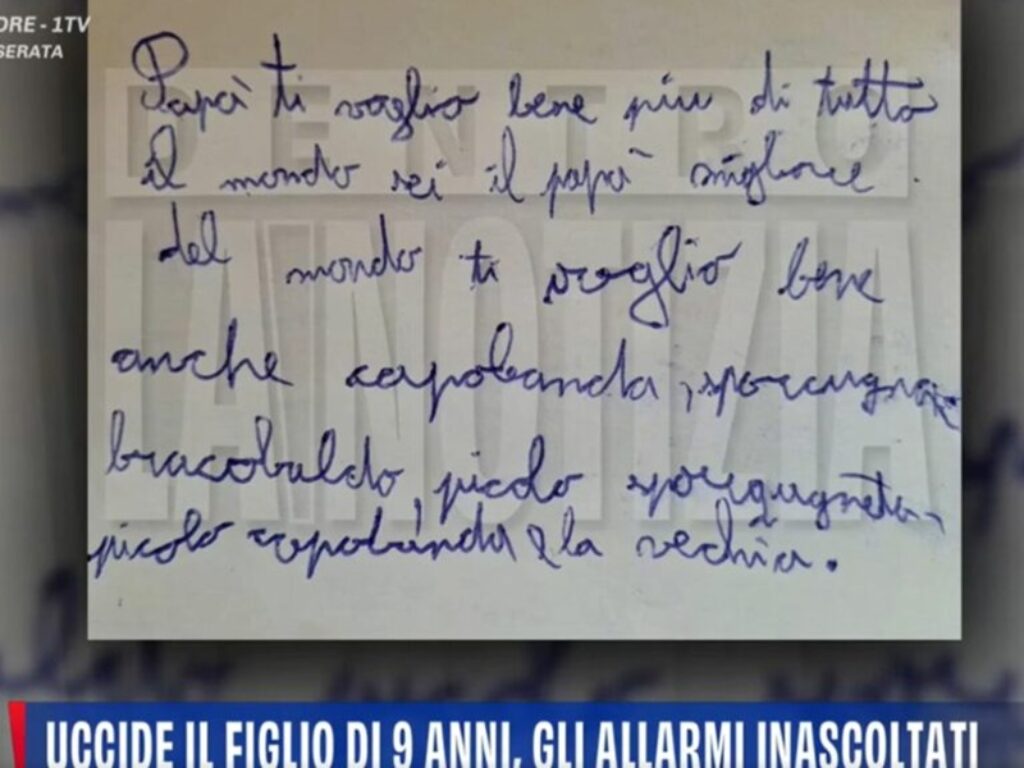 ORE - 1TV
SERATA
DENTRO
LA NOTIZIA
Papà ti voglio bene piu di tutto
il mondo sei il papà migliore
del mondo ti voglio bene
anche capobanda,
bracobaldo, picolo
picolo capobanda e la vechia.
UCCIDE IL FIGLIO DI 9 ANNI, GLI ALLARMI INASCOLTATI